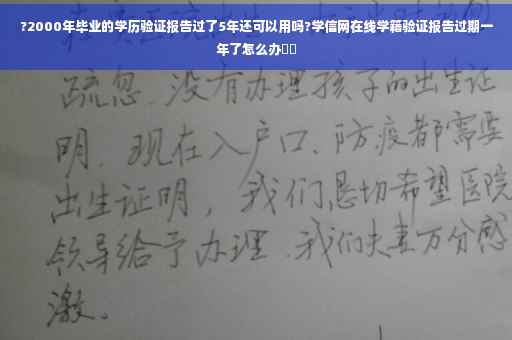 ?2000年毕业的学历验证报告过了5年还可以用吗?学信网在线学籍验证报告过期一
年了怎么办
疏忽.没有办理孩子的出生证
明.现在入户口、防疫都需要
出生证明,我们恳切希望医院
领导给予办理.我们夫妻万分感
激。